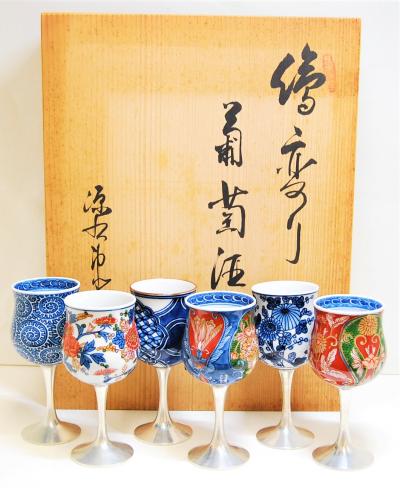 繪変り
葡萄酒
源右衛門